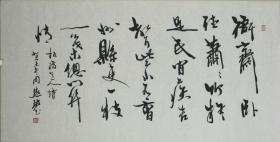 衙齋臥
聽蕭々竹疑
是民間疾苦
聲些小吾曹
州縣吏一枝
一葉總關
情 板橋先生詩